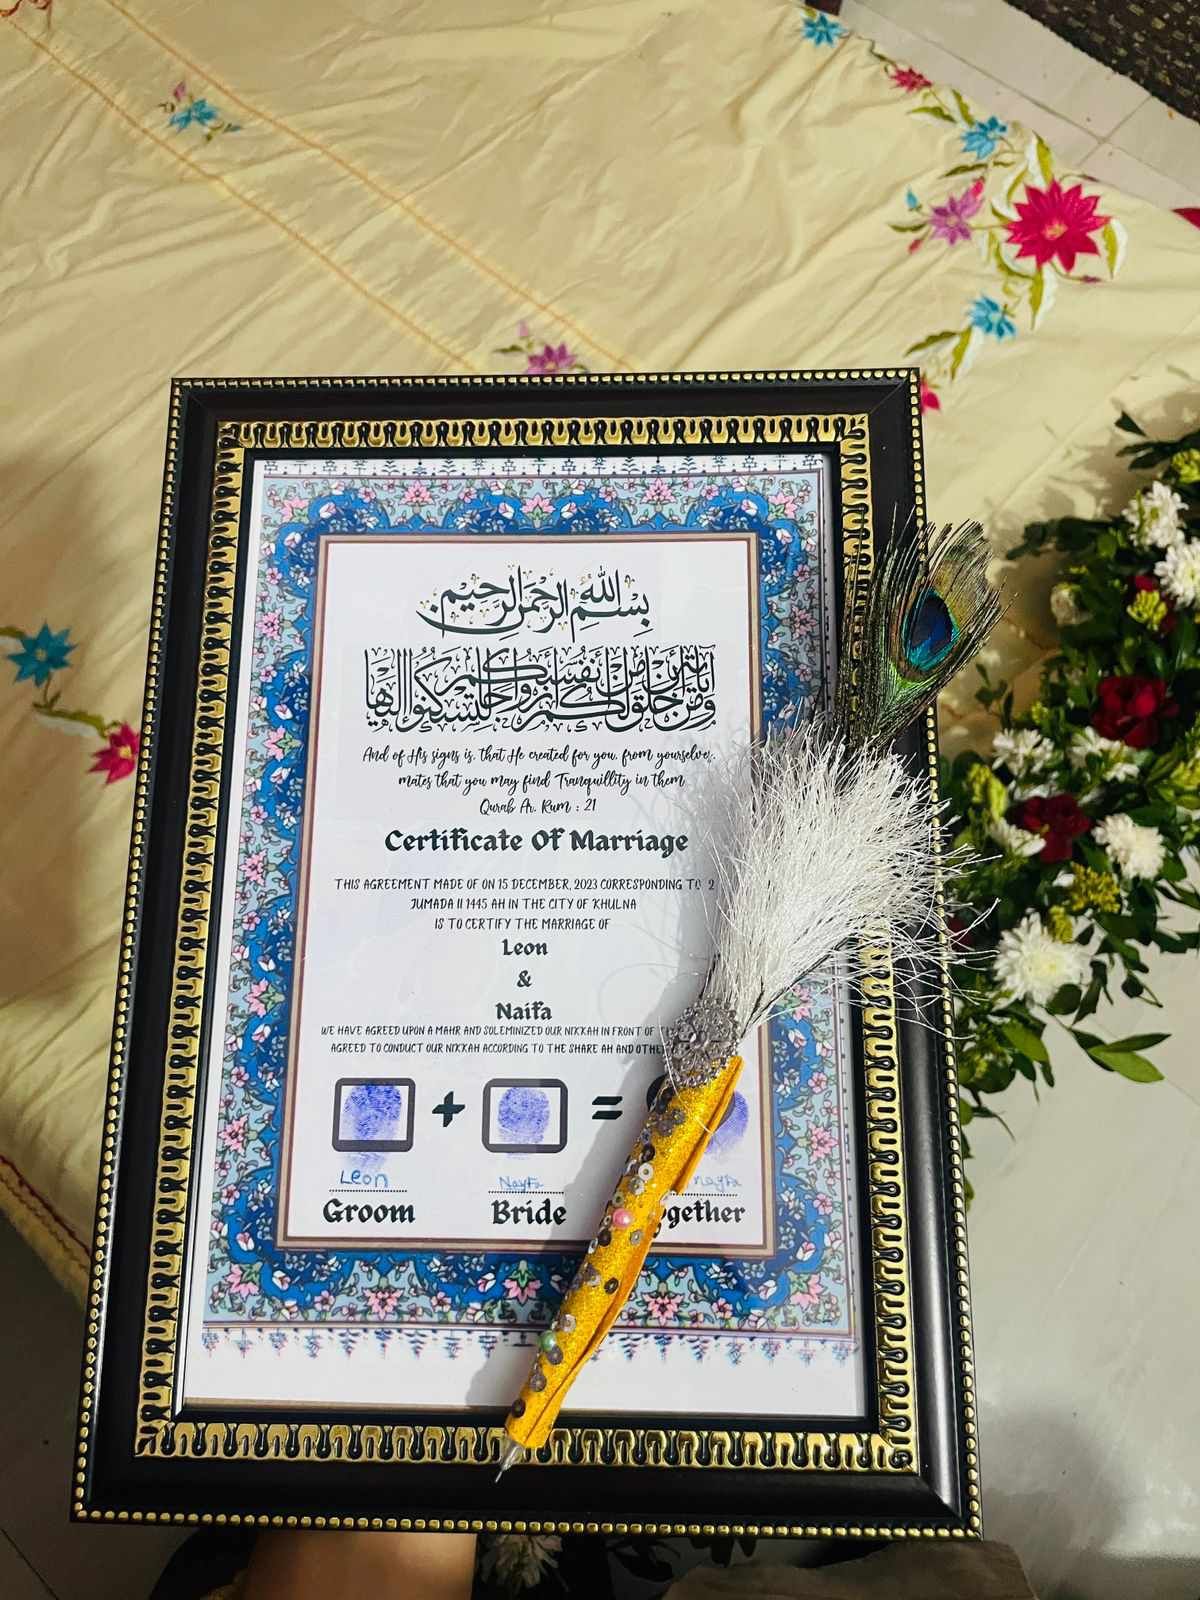 بِسْمِ اللهِ الرَّحْمٰنِ الرَّحِيمِ
وَمِنْ آيَاتِهِ أَنْ خَلَقَ لَكُم مِّنْ أَنفُسِكُمْ أَزْوَاجًا لِّتَسْكُنُوا إِلَيْهَا
And of His signs is, that He created for you, from yourselves,
mates that you may find Tranquillity in them
Qurab Ar. Rum : 21
Certificate Of Marriage
THIS AGREEMENT MADE OF ON 15 DECEMBER, 2023 CORRESPONDING TO 2
JUMADA II 1445 AH IN THE CITY OF KHULNA
IS TO CERTIFY THE MARRIAGE OF
Leon
&
Naifa
WE HAVE AGREED UPON A MAHR AND SOLEMINIZED OUR NIKKAH IN FRONT OF
AGREED TO CONDUCT OUR NIKKAH ACCORDING TO THE SHARE AH AND
+ =
Leon Nayfa nayfa
Groom Bride gether